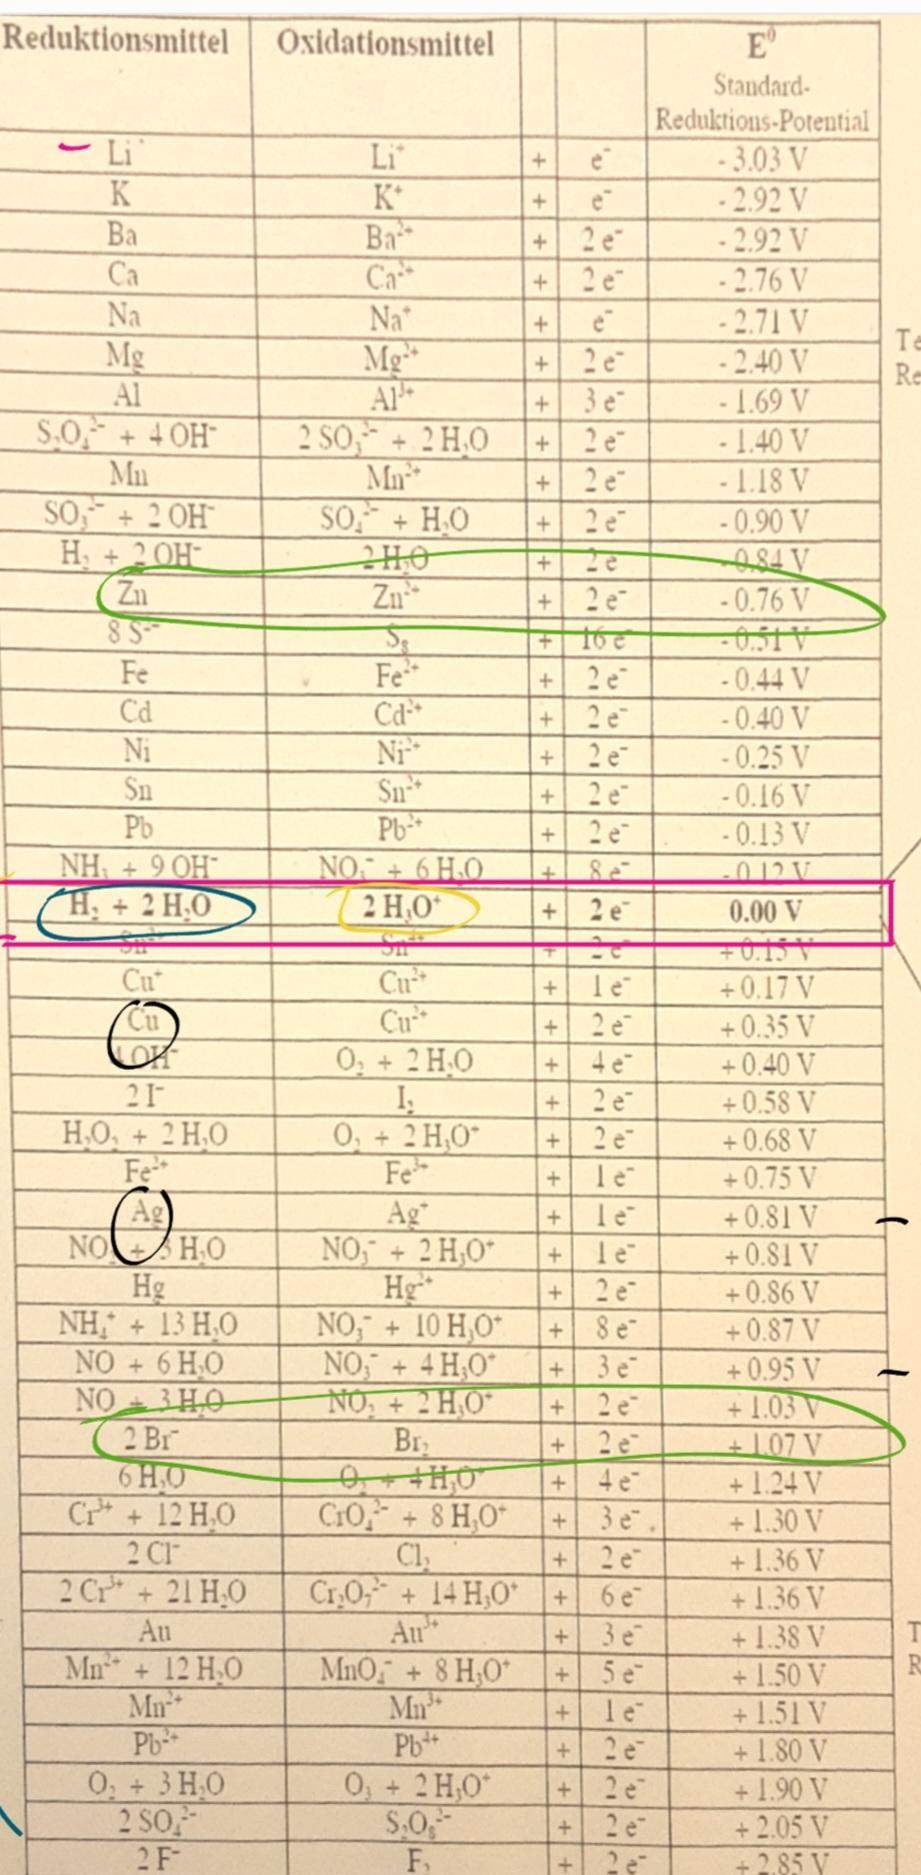 Reduktionsmittel Oxidationsmittel E⁰
Standard-
Reduktions-Potential
Li Li⁺ + e⁻ - 3.03 V
K K⁺ + e⁻ - 2.92 V
Ba Ba²⁺ + 2 e⁻ - 2.92 V
Ca Ca²⁺ + 2 e⁻ - 2.76 V
Na Na⁺ + e⁻ - 2.71 V
Mg Mg²⁺ + 2 e⁻ - 2.40 V
Al Al³⁺ + 3 e⁻ - 1.69 V
S₂O₄²⁻ + 4 OH⁻ 2 SO₃²⁻ + 2 H₂O + 2 e⁻ - 1.40 V
Mn Mn²⁺ + 2 e⁻ - 1.18 V
SO₃²⁻ + 2 OH⁻ SO₄²⁻ + H₂O + 2 e⁻ - 0.90 V
H₂ + 2 OH⁻ 2 H₂O + 2 e - 0.84 V
Zn Zn²⁺ + 2 e⁻ - 0.76 V
8 S²⁻ S₈ + 16 e⁻ - 0.51 V
Fe Fe²⁺ + 2 e⁻ - 0.44 V
Cd Cd²⁺ + 2 e⁻ - 0.40 V
Ni Ni²⁺ + 2 e⁻ - 0.25 V
Sn Sn²⁺ + 2 e⁻ - 0.16 V
Pb Pb²⁺ + 2 e⁻ - 0.13 V
NH₃ + 9 OH⁻ NO₃⁻ + 6 H₂O + 8 e⁻ - 0.12 V
H₂ + 2 H₂O 2 H₃O⁺ + 2 e⁻ 0.00 V
Sn²⁺ Sn⁴⁺ + 2 e⁻ + 0.15 V
Cu⁺ Cu²⁺ + 1 e⁻ + 0.17 V
Cu Cu²⁺ + 2 e⁻ + 0.35 V
4 OH⁻ O₂ + 2 H₂O + 4 e⁻ + 0.40 V
2 I⁻ I₂ + 2 e⁻ + 0.58 V
H₂O₂ + 2 H₂O O₂ + 2 H₃O⁺ + 2 e⁻ + 0.68 V
Fe²⁺ Fe³⁺ + 1 e⁻ + 0.75 V
Ag Ag⁺ + 1 e⁻ + 0.81 V
NO₂ + 3 H₂O NO₃⁻ + 2 H₃O⁺ + 1 e⁻ + 0.81 V
Hg Hg²⁺ + 2 e⁻ + 0.86 V
NH₄⁺ + 13 H₂O NO₃⁻ + 10 H₃O⁺ + 8 e⁻ + 0.87 V
NO + 6 H₂O NO₃⁻ + 4 H₃O⁺ + 3 e⁻ + 0.95 V
NO + 3 H₂O NO₂ + 2 H₃O⁺ + 2 e⁻ + 1.03 V
2 Br⁻ Br₂ + 2 e⁻ + 1.07 V
6 H₂O O₂ + 4 H₃O⁺ + 4 e⁻ + 1.24 V
Cr³⁺ + 12 H₂O CrO₄²⁻ + 8 H₃O⁺ + 3 e⁻ + 1.30 V
2 Cl⁻ Cl₂ + 2 e⁻ + 1.36 V
2 Cr³⁺ + 21 H₂O Cr₂O₇²⁻ + 14 H₃O⁺ + 6 e⁻ + 1.36 V
Au Au³⁺ + 3 e⁻ + 1.38 V
Mn²⁺ + 12 H₂O MnO₄⁻ + 8 H₃O⁺ + 5 e⁻ + 1.50 V
Mn²⁺ Mn³⁺ + 1 e⁻ + 1.51 V
Pb²⁺ Pb⁴⁺ + 2 e⁻ + 1.80 V
O₂ + 3 H₂O O₃ + 2 H₃O⁺ + 2 e⁻ + 1.90 V
2 SO₄²⁻ S₂O₈²⁻ + 2 e⁻ + 2.05 V
2 F⁻ F₂ + 2 e⁻ + 2.85 V